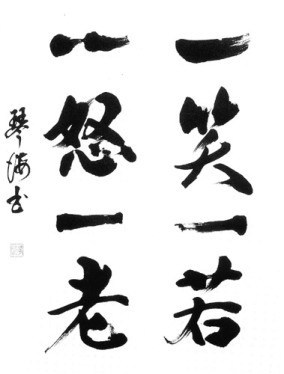 一笑一若
一怒一老
琴海书